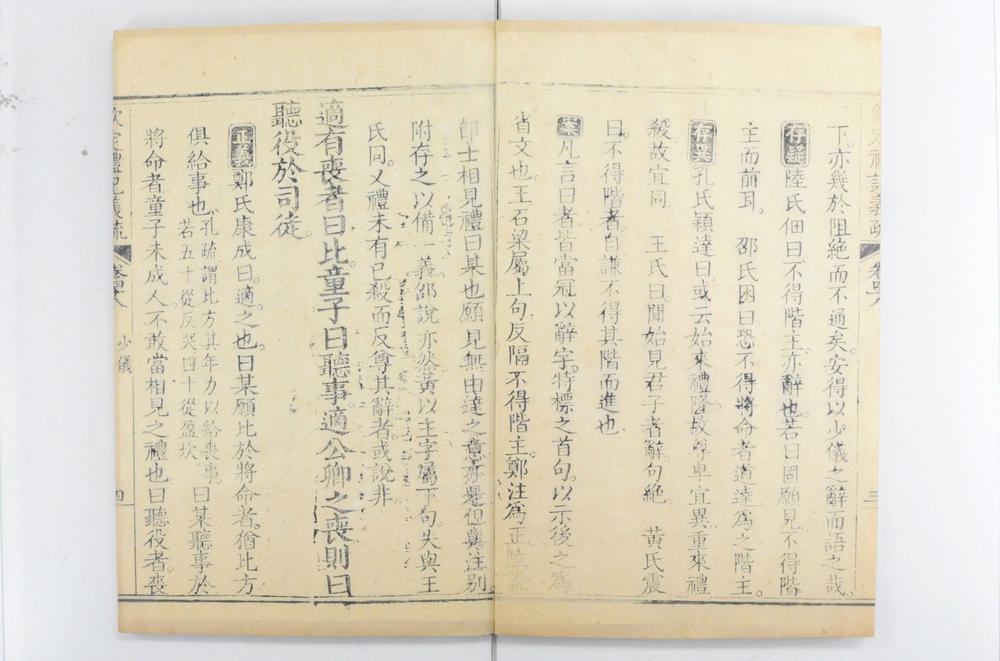 下亦幾於阻絶而不通矣安得以少儀之辭而語之哉
存疑 陸氏佃曰不得階主亦辭也若曰固願見不得階
主而前耳 邵氏困曰恐不得將命者道達為之階主
存異 孔氏穎達曰或云始來禮隆故尊卑宜異重來禮
殺故宜同 王氏曰聞始見君子者辭句絶 黄氏震
曰不得階者自謙不得其階而進也
案 凡言曰者皆當冠以辭字特標之首句以示後之為
省文也王石梁屬上句反隔不得階主鄭注為正陸説
即士相見禮曰某也願見無由達之意亦是但與注别
附存之以備一義邵説亦然黄以主字屬下句失與王
氏同又禮未有已殺而反尊其辭者或說非
適有喪者曰比童子曰聽事適公卿之喪則曰
聽役於司徒
正義 鄭氏康成曰適之也曰某願比於將命者猶比方
俱給事也 孔疏謂比方其年力以給喪事
若五十從反哭四十從盈坎 曰某聽事於
將命者童子未成人不敢當相見之禮也曰聽役者喪
欽定禮記義疏 卷四十八 少儀 四
三